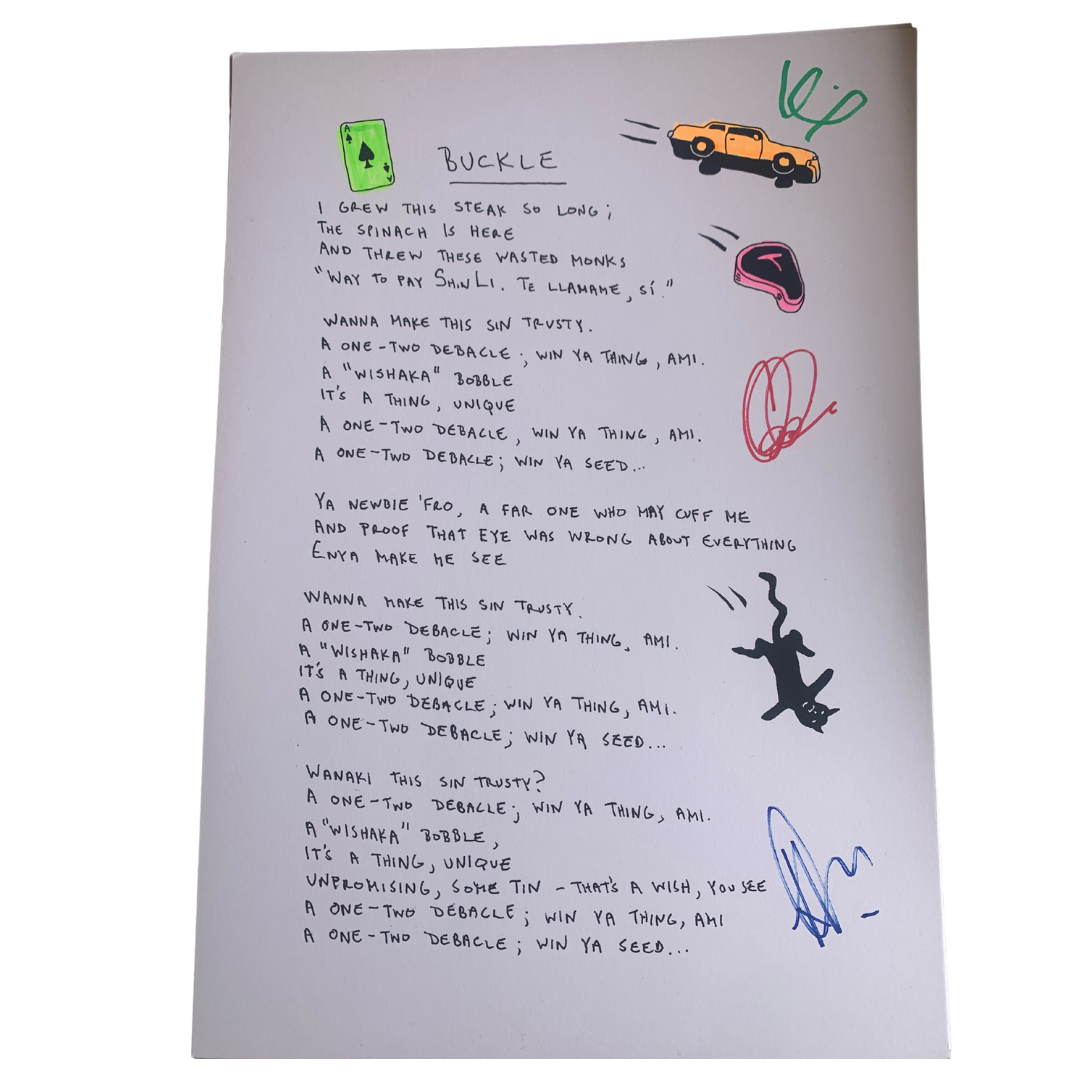 A
A
BUCKLE
I GREW THIS STEAK SO LONG;
THE SPINACH IS HERE
AND THREW THESE WASTED MONKS
"WAY TO PAY SHIN LI. TE LLAMAME, SÍ."
WANNA MAKE THIS SIN TRUSTY.
A ONE-TWO DEBACLE; WIN YA THING, AMI.
A "WISHAKA" BOBBLE
IT'S A THING, UNIQUE
A ONE-TWO DEBACLE, WIN YA THING, AMI.
A ONE-TWO DEBACLE; WIN YA SEED...
YA NEWBIE 'FRO, A FAR ONE WHO MAY CUFF ME
AND PROOF THAT EYE WAS WRONG ABOUT EVERYTHING
ENYA MAKE ME SEE
WANNA MAKE THIS SIN TRUSTY.
A ONE-TWO DEBACLE; WIN YA THING, AMI.
A "WISHAKA" BOBBLE
IT'S A THING, UNIQUE
A ONE-TWO DEBACLE; WIN YA THING, AMI.
A ONE-TWO DEBACLE; WIN YA SEED...
WANAKI THIS SIN TRUSTY?
A ONE-TWO DEBACLE; WIN YA THING, AMI.
A "WISHAKA" BOBBLE,
IT'S A THING, UNIQUE
UNPROMISING, SOME TIN - THAT'S A WISH, YOU SEE
A ONE-TWO DEBACLE; WIN YA THING, AMI
A ONE-TWO DEBACLE; WIN YA SEED...